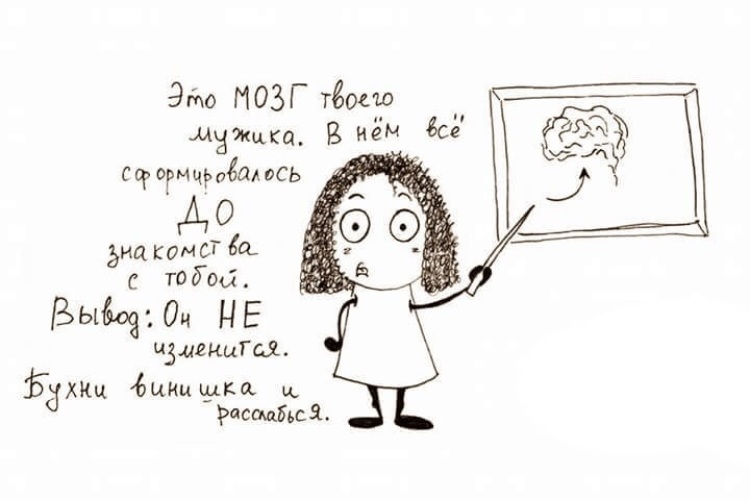 Это МОЗГ твоего
мужика. В нём всё
сформировалось
ДО
знакомства
с тобой.
Вывод: Он НЕ
изменится.
Бухни винишка и
расслабься.